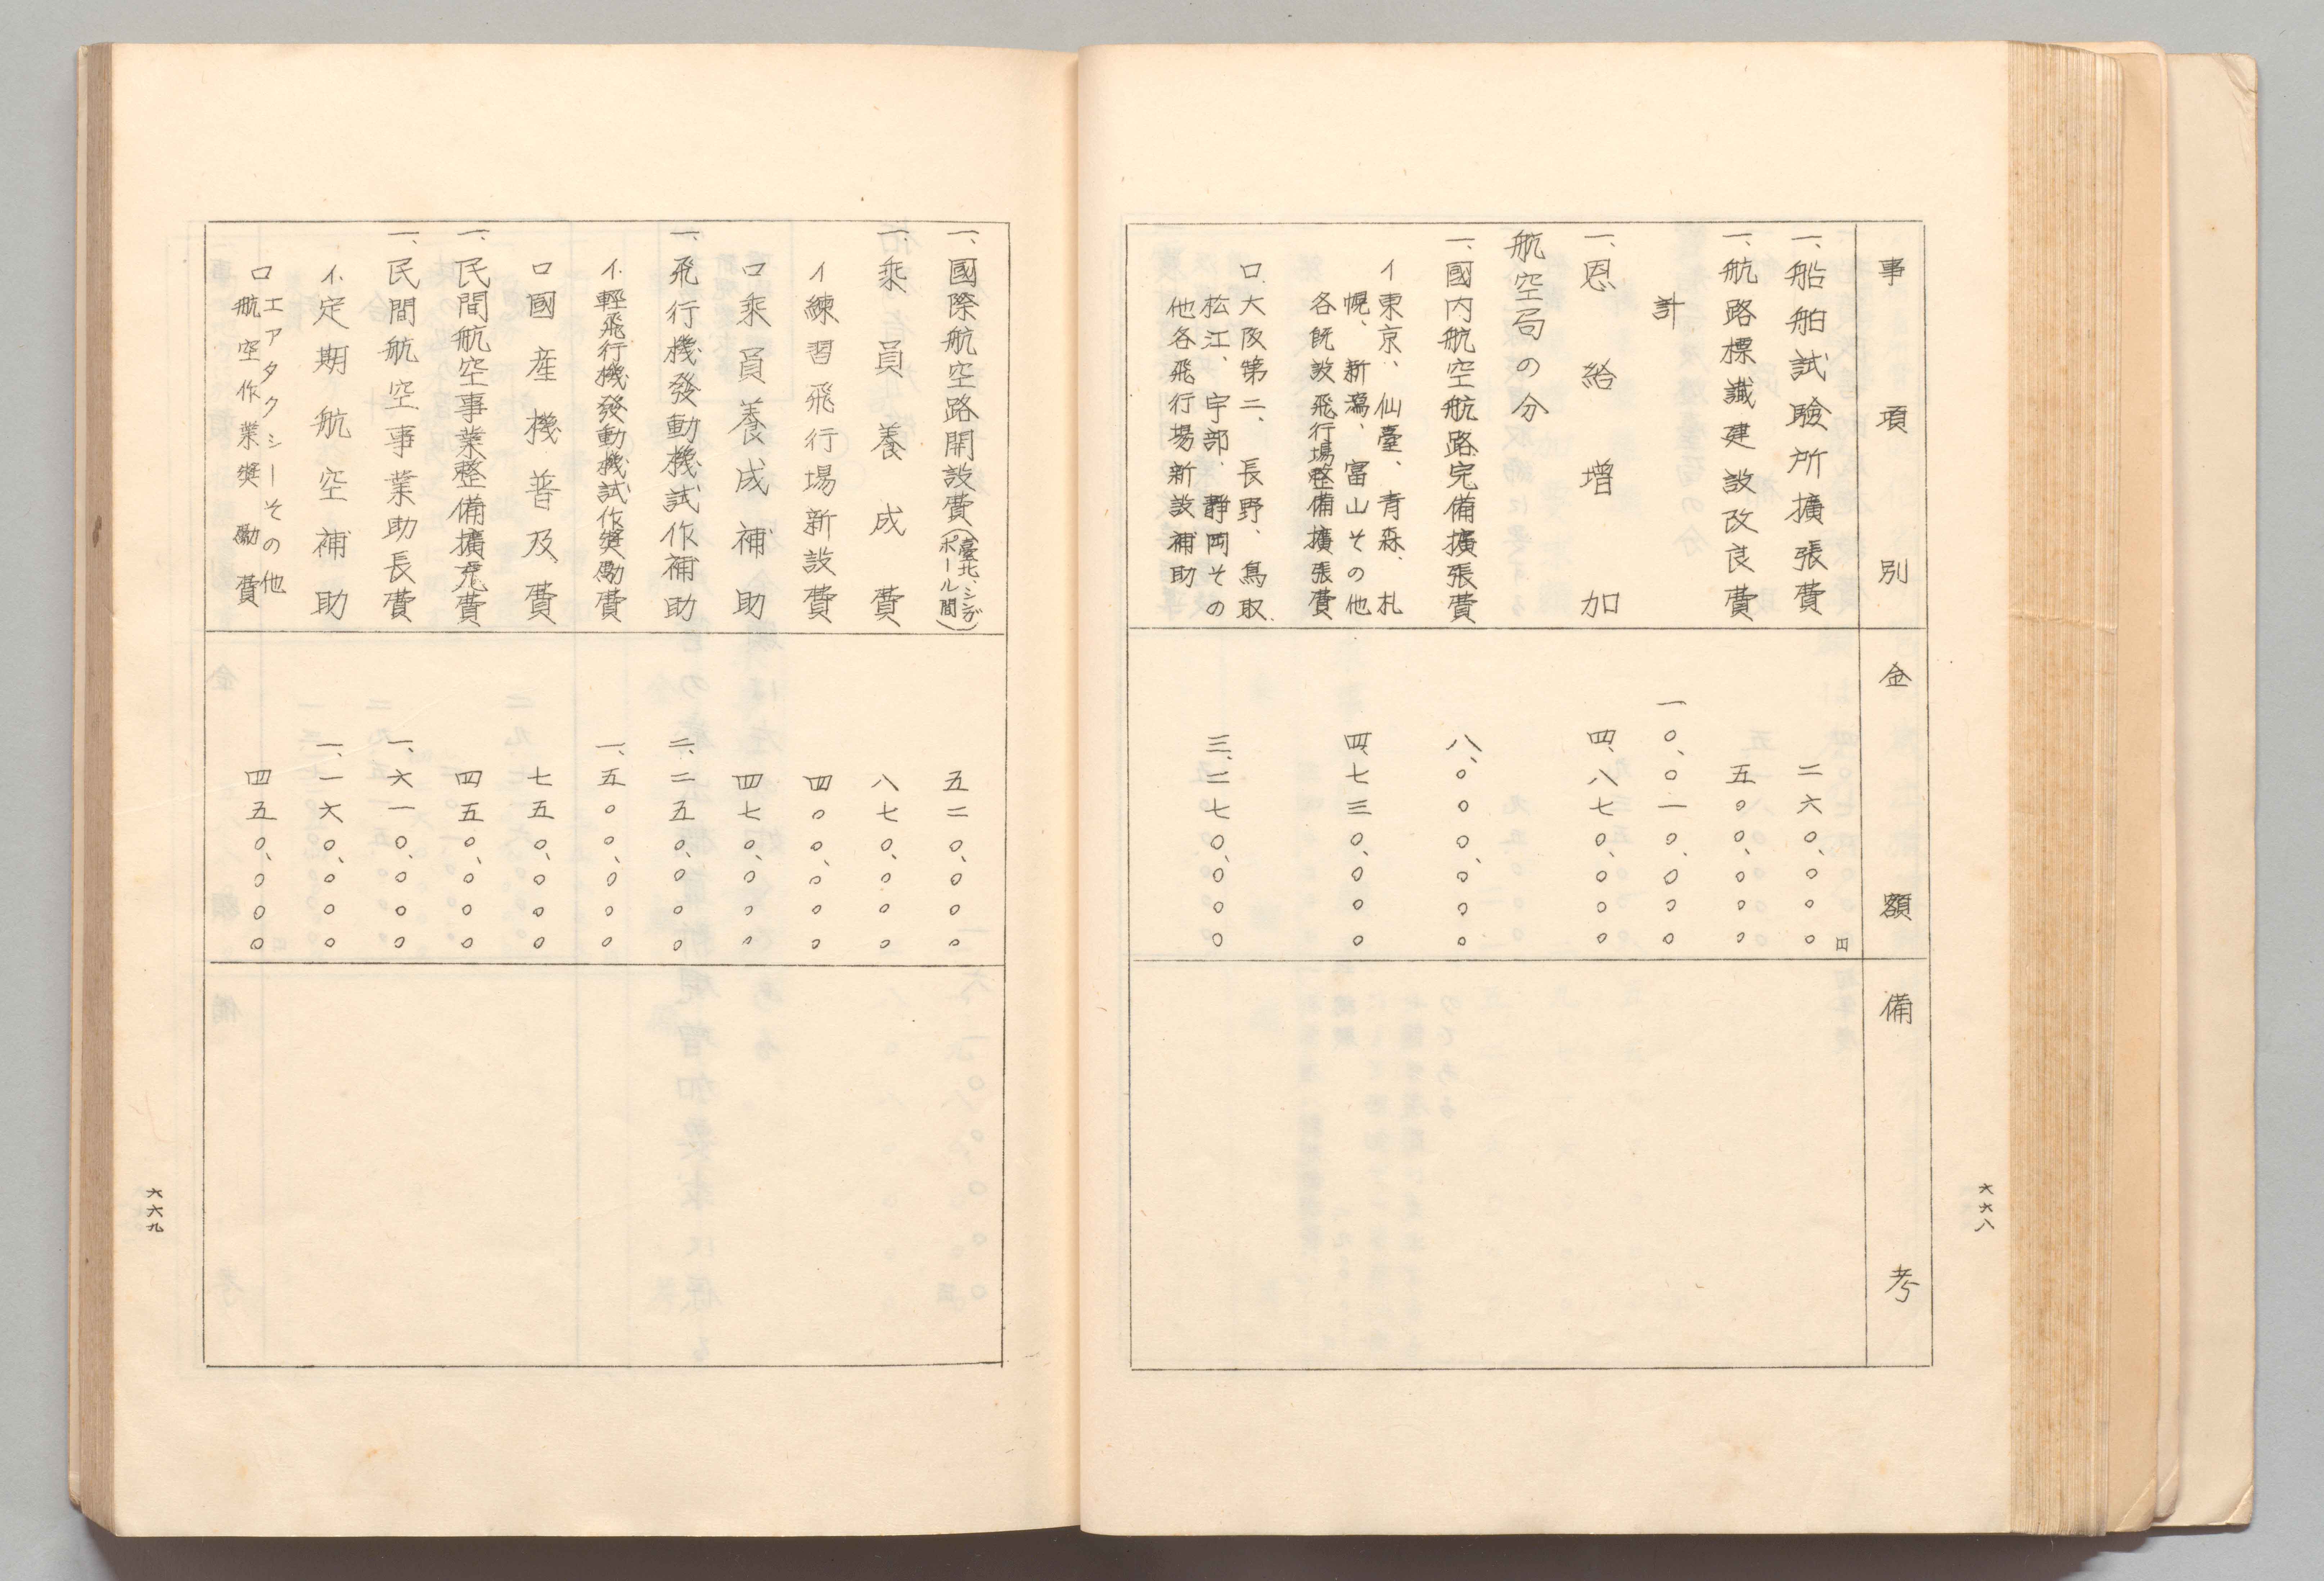 事項別 金額 備考
一、船舶試驗所擴張費 二六〇、〇〇〇円
一、航路標識建設改良費 五〇〇、〇〇〇
計 一〇、〇一〇、〇〇〇
一、恩給増加 四、八七〇、〇〇〇
航空局の分
一、國内航空航路完備擴張費 八、〇〇〇、〇〇〇
イ東京、仙臺、青森、札
幌、新潟、富山その他
各既設飛行場整備擴張費 四、七三〇、〇〇〇
ロ大阪第二、長野、鳥取
松江、宇部、靜岡その
他各飛行場新設補助 三、二七〇、〇〇〇
六六八
一、國際航空路開設費(臺北、シンガポール間) 五二〇、〇〇〇
一、乘員養成費 八七〇、〇〇〇
イ練習飛行場新設費 四〇〇、〇〇〇
ロ乘員養成補助 四七〇、〇〇〇
一、飛行機發動機試作補助 二、二五〇、〇〇〇
イ、輕飛行機發動機試作奬勵費 一、五〇〇、〇〇〇
ロ國産機普及費 七五〇、〇〇〇
一、民間航空事業整備擴充費 四五〇、〇〇〇
一、民間航空事業助長費 一、六一〇、〇〇〇
イ、定期航空補助 一、一六〇、〇〇〇
ロエアタクシーその他
航空作業奬勵費 四五〇、〇〇〇
六六九